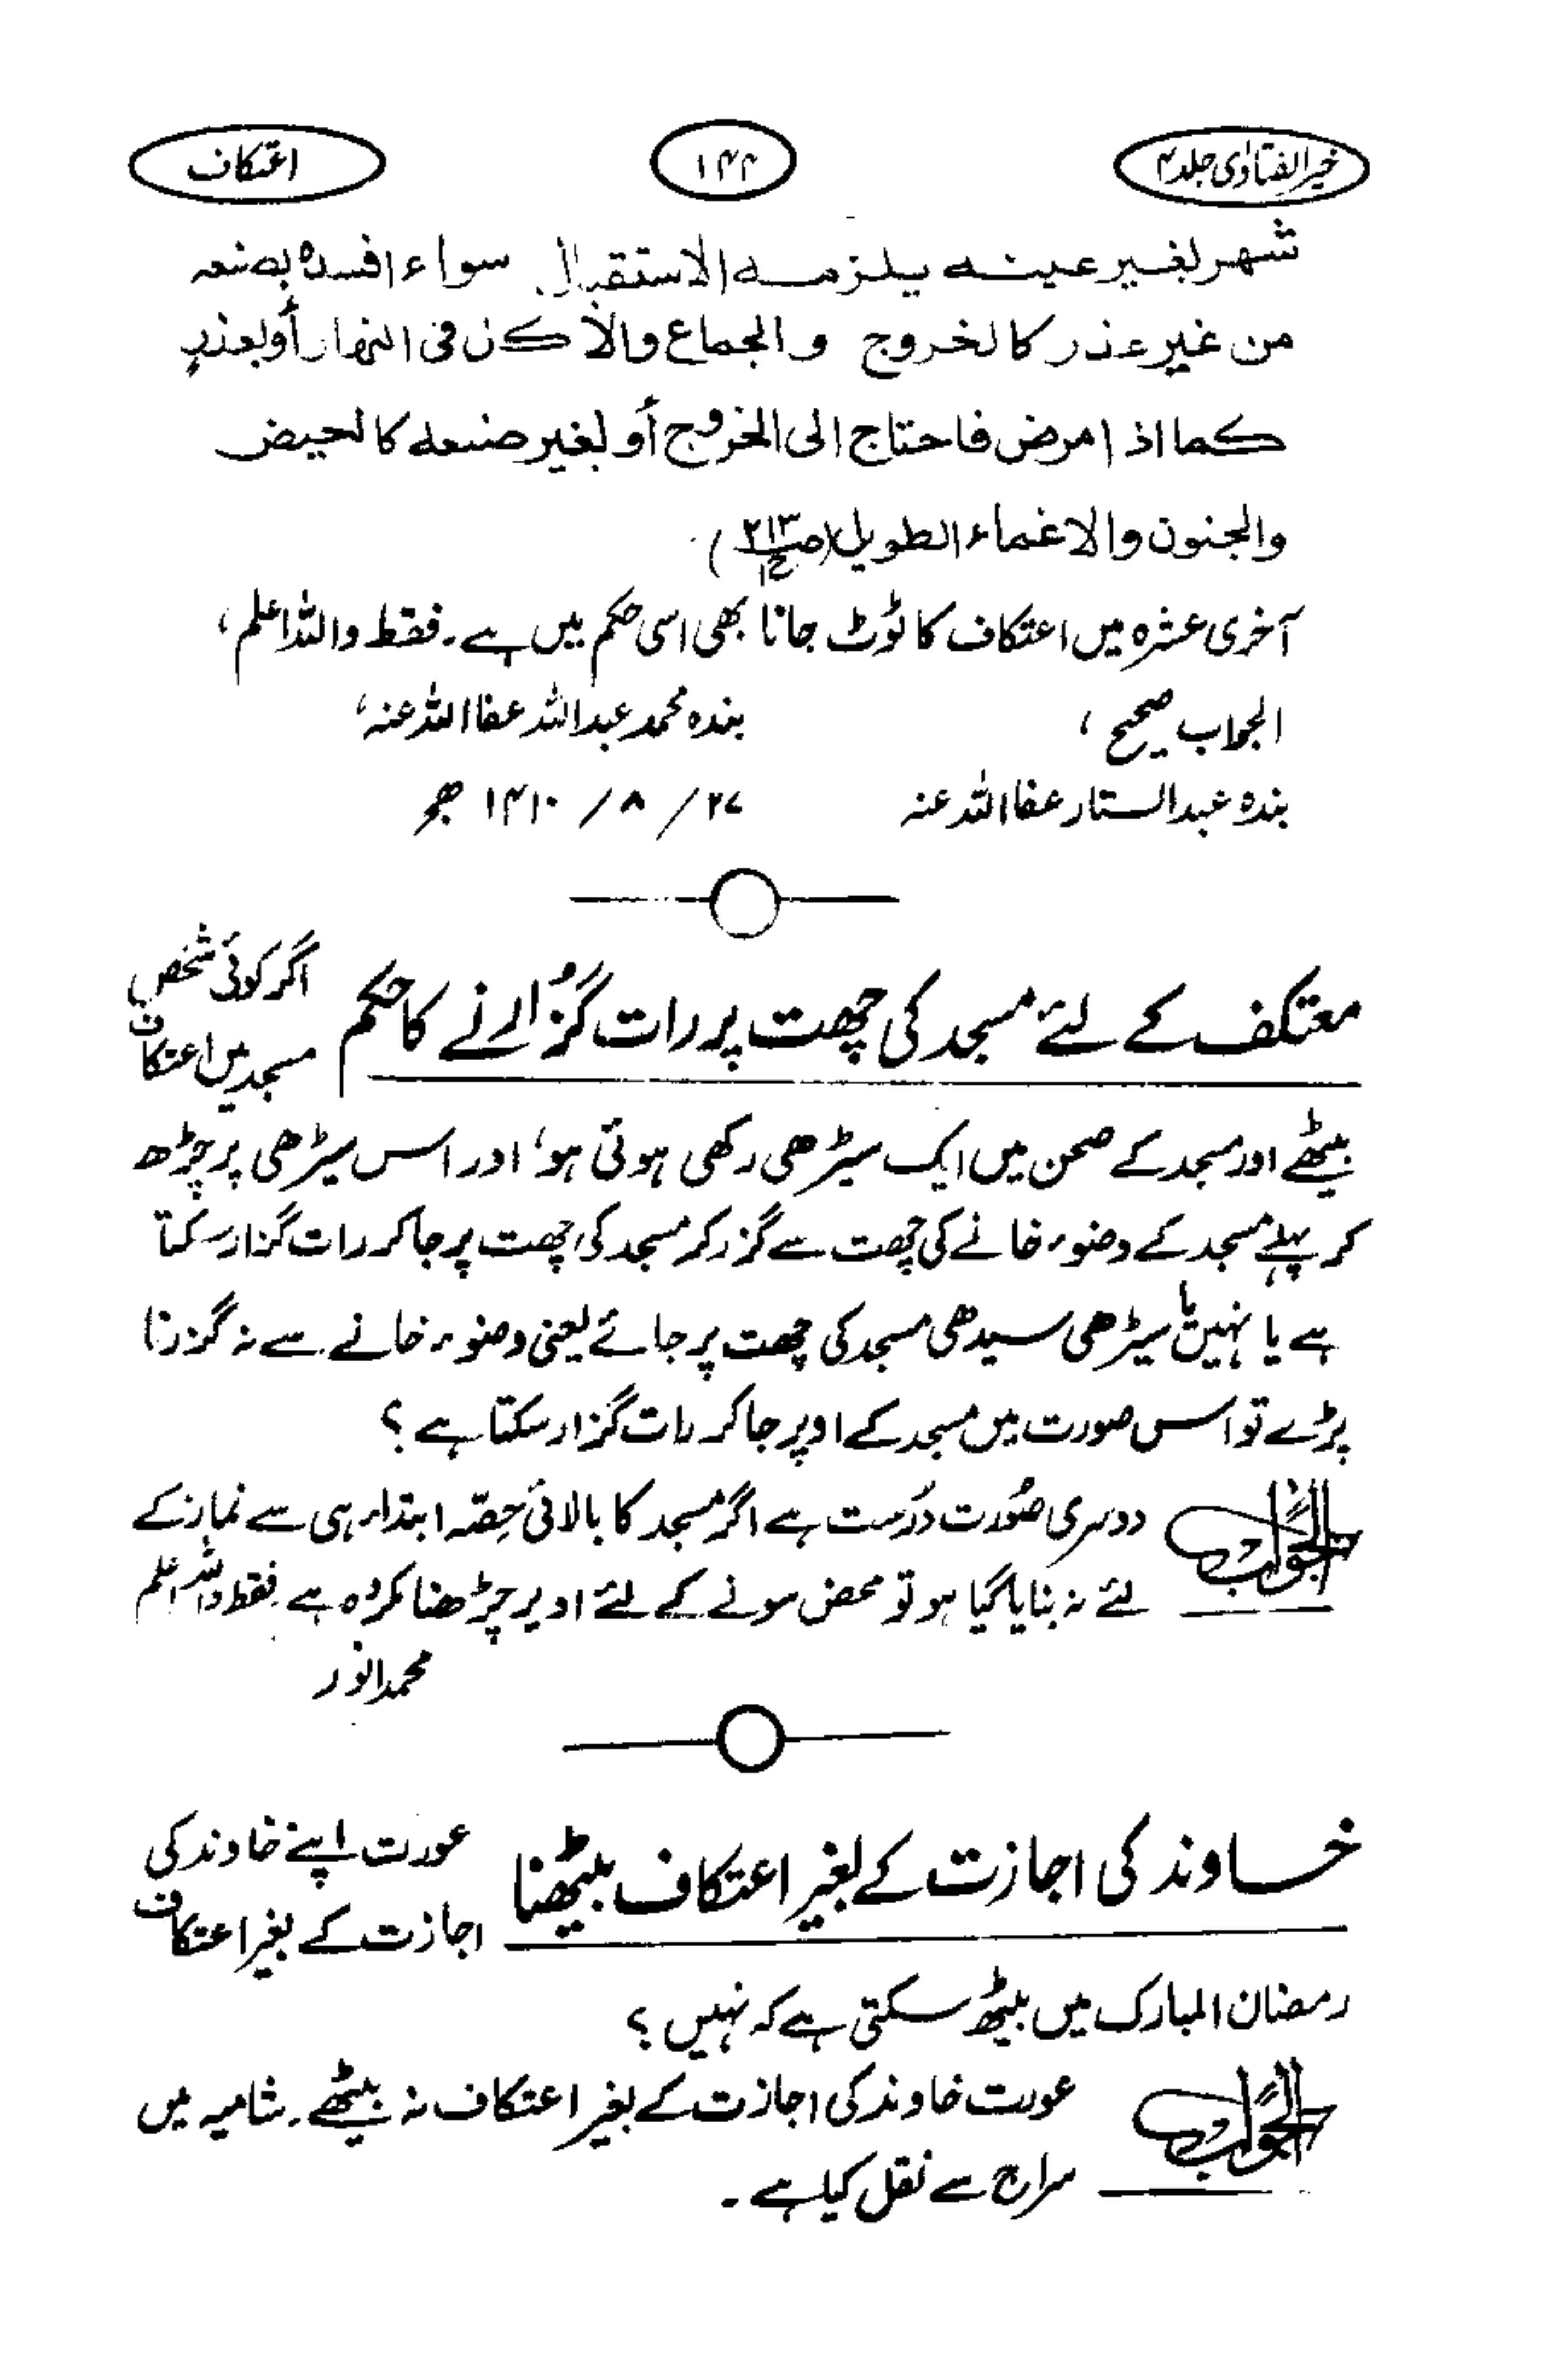 خیر الفتاوٰی جلد ۴
۱۴۴
اعتکاف
شهر بغير عينه يلزمه الاستقبال سواء افسده بصنعه
من غير عذر كالخروج والجماع والأكل فى النهار أو بعذرٍ
كما اذا مرض فاحتاج الى الخروج أو بغير صنعه كالحيض
والجنون والاغماء الطويل (ص۲۱۳ ج۱)
آخری عشرہ میں اعتکاف کا ٹوٹ جانا بھی اسی حکم میں ہے۔ فقط واللہ اعلم،
الجواب صحیح، بندہ محمد عبداللہ عفا اللہ عنہ،
بندہ عبدالستار عفا اللہ عنہ ۲۷/ ۸/ ۱۴۱۰ھج
معتکف کے لئے مسجد کی چھت پر رات گزُارنے کا حکم
اگر کوئی شخص
مسجد میں اعتکاف
بیٹھے اور مسجد کے صحن میں ایک سیڑھی رکھی ہوئی ہو، اور اس سیڑھی پر چڑھ
کر پہلے مسجد کے وضوء خانے کی چھت سے گزر کر مسجد کی چھت پر جا کر رات گذار سکتا
ہے یا نہیں یا سیڑھی سیدھی مسجد کی چھت پر جائے یعنی وضوء خانے سے نہ گزرنا
پڑے تو اس صورت میں مسجد کے اوپر جا کر رات گزار سکتا ہے؟
الجواب دوسری صُورت درُست ہے اگر مسجد کا بالائی حِصّہ ابتداء ہی سے نماز کے
لئے نہ بنایا گیا ہو تو محض سونے کے لئے اوپر چڑھنا مکروہ ہے۔ فقط واللہ اعلم
محمد انور
خاوند کی اجازت کے بغیر اعتکاف بیٹھنا
عورت اپنے خاوند کی
اجازت کے بغیر اعتکاف
رمضان المبارک میں بیٹھ سکتی ہے کہ نہیں؟
الجواب عورت خاوند کی اجازت کے بغیر اعتکاف نہ بیٹھے۔ شامیہ میں
سراج سے نقل کیا ہے۔